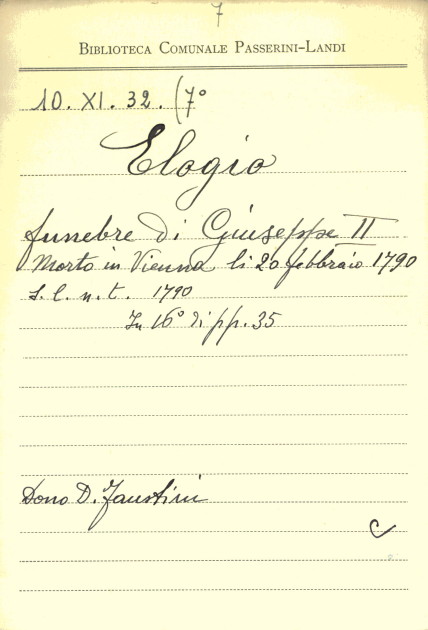 7
BIBLIOTECA COMUNALE PASSERINI-LANDI
10. XI. 32. (7°
Elogio
funebre di Giuseppe II
Morto in Vienna li 20 febbraio 1790
s. l. n. t. 1790
In 16° di pp. 35
Dono D. Faustini
C